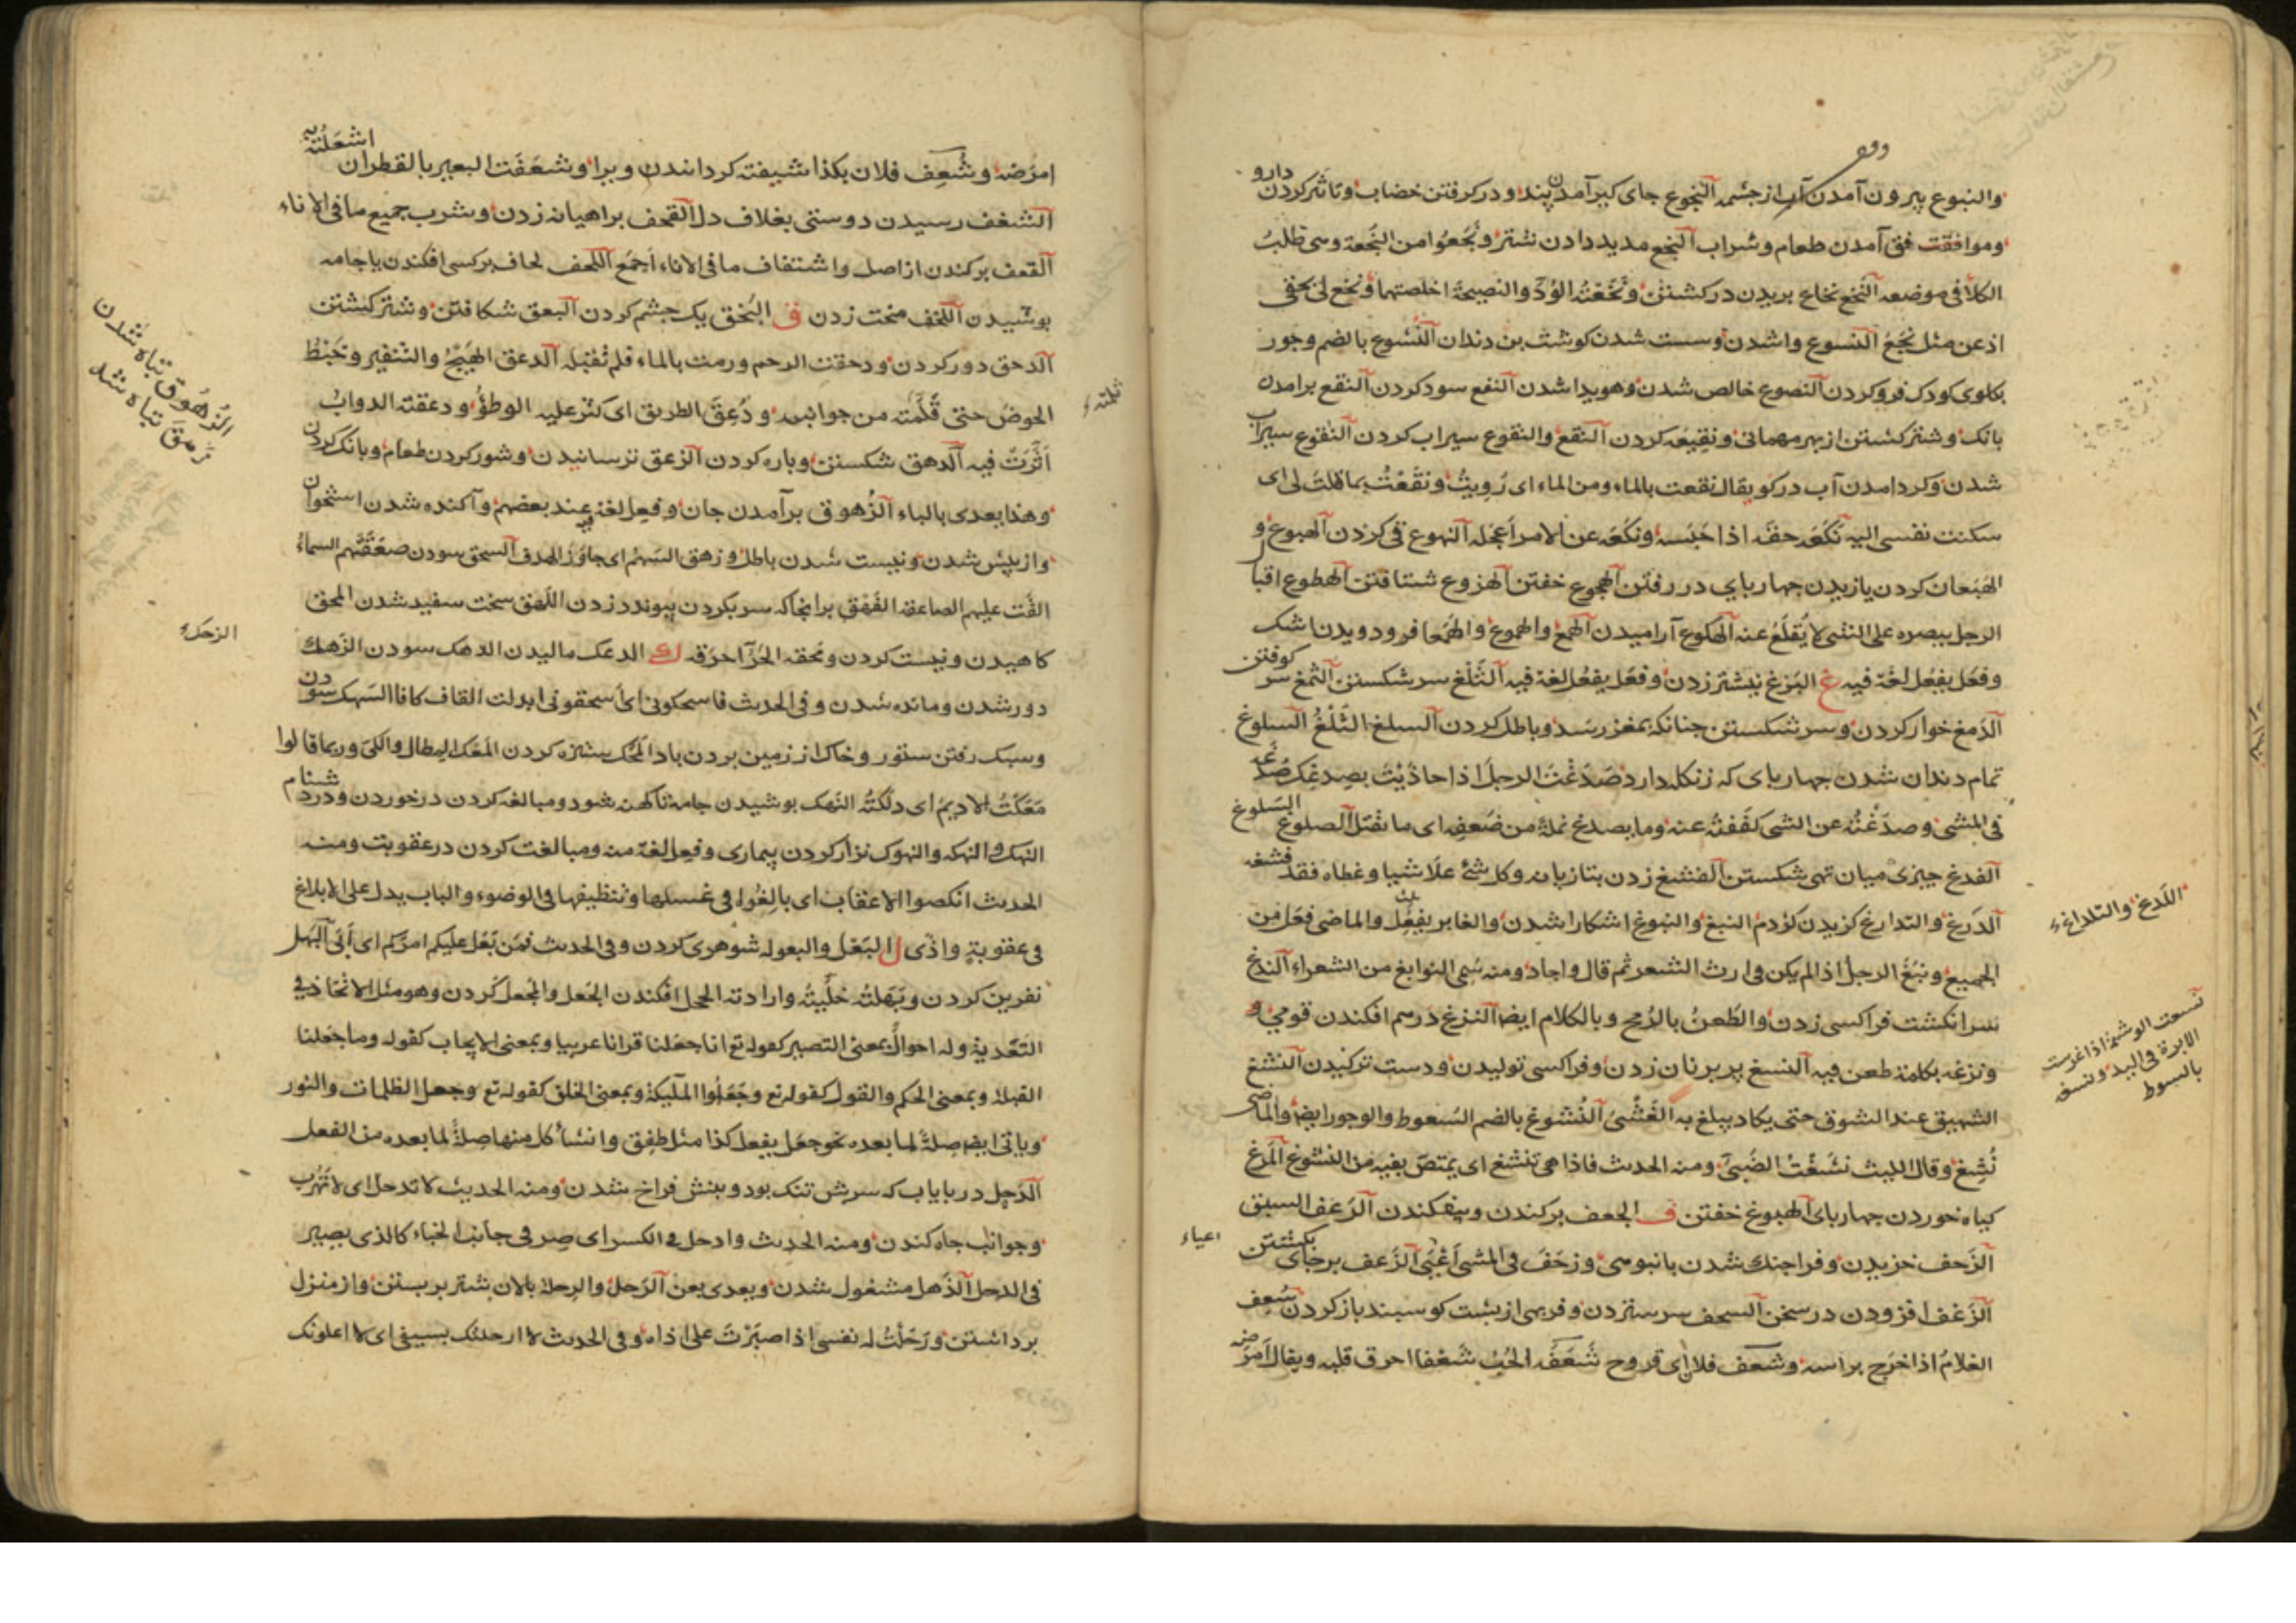 والنبوع بیرون آمدن آب از چشمه النجوع جای کیر آمدن پند و در کرفتن خضاب و تاثر کردن دارو
وموافقت آمدن طعام و شراب النجع مدید دادن شتر و نُجعوا من النُجعة وهی طلب
الکلأ فی موضعه النخع نخاع بریدن در کشتن و نَخَعتُه الوُدّ والنصیحة اخلصتهما ونخع لی بحقی
اذعن مثل نَجَعَ النسوع واشدن وسست شدن کوشت بن دندان النُشوع بالضم وجور
بکلوی کودک فرو کردن النصوع خالص شدن وهویدا شدن النفع سود کردن النقع برامدن
بانک وشتر کشتن از بهر مهمانی ونقیعه کردن النقع والنقوع سیراب کردن النقوع سیراب
شدن وکرد امدن آب در کو یقال نقعت بالماء ومن الماء ای رُویتُ ونقعتُ بما قلت لی ای
سکنت نفسی الیه نکعه حقه اذا حَبَسه ونکعه عن الامر اَعجَله النهوع قی کردن الهبوع و
الهَبَعان کردن یازیدن چهار بای در رفتن الهجوع خفتن الهزوع شتافتن الهطوع اقبال
الرجل ببصره علی الشی لا یُقلعُ عنه الهکوع آرامیدن الهمع والهموع والهَمَعا فرو دویدن اشک
وفعَل یفعُل لغة فیه غ البزغ نیشتر زدن وفعَل یفعُل لغة فیه الثَلغ سر شکستن الثمغ سر کوفتن
الدمغ خوار کردن وسر شکستن چنانکه بمغز رسد وباطل کردن السلغ الثَلْغُ السلوغ
تمام دندان شدن چهار بای که زنکله دارد صَدَغْتَ الرجلَ اذا حاذَیْتَ بصِدغِک صُدغه
فی المشی وصدَغْتُه عن الشی کففتُه عنه وما یصدغ نملة من ضَعفِه ای ما یقتل الصلوغ السلوغ
الفدغ چیزی میان تهی شکستن الفشغ زدن بتازیانه وکل شئ علا شیا وغطاه فقد فشغه
کزیدن کژدم النبغ والنبوغ اشکارا شدن والغابر یفعل والماضی فعَل من
الجمیع ونبغ الرجل اذا لم یکن فی ارث الشعر ثم قال واجاد ومنه سُمی النوابغ من الشعراء الندغ
سر انکشت فرا کسی زدن والطَعنُ بالرُمح وبالکلام ایضا النزغ درهم افکندن قومی و
ونزغه بکلمة طعن فیه النسغ پر بر نان زدن وفرا کسی تولیدن ودست ترکیدن النشغ
الشهیق عند الشوق حتی یکاد یبلغ به الغَشْیَ النُشوغ بالضم السُعوط والوجور ایضا والماضی
نُشِغَ وقال اللیث نشَغْتُ الصَبیَّ ومنه الحدیث فاذا هی تنشغ ای یمتص بفیه من النشوغ المَرغ
کیاه خوردن چهار بای الهبوغ خفتن ف الجعف برکندن وبیفکندن الزعف السبق
الزَحف خزیدن وفرا جنک شدن بانبوهی وزحَفَ فی المشی اَعْیَی الزَعف برجای بکشتن
الزَغف افزودن در سخن السحف سر ستردن وفربهی از پشت کوسپند باز کردن شُعِف
الغلامُ اذا خرَج براسه وشعف فلان ای قروح شَعَفَه الحُبُّ شَغفا احرق قلبه ویقال اَمرَضه
اللَدغ والتلداغ
نسغت الوشمة اذا غرست
الابرة فی الید ونسغه
بالسوط
اعیاء
امرَضه وشُعِف فلان بکذا شیفته کردانیدن ویرا وشعَفَت البعیر بالقطران اشعَلتُه به
الشغف رسیدن دوستی بغلاف دل القحف بر اهیانه زدن وشرب جمیع ما فی الاناء
القعف برکندن از اصل واشتفاف ما فی الاناء اَجمَع اللحف لحاف بر کسی افکندن یا جامه
پوشیدن اللخف سخت زدن ق البَخق یک چشم کردن البعق شکافتن وشتر کشتن
الدحق دور کردن ودحقت الرحم ورمت بالماء فلم تقبله الدعق الهَیْجُ والتنفیر وخَبْطُ
الحوض حتی من جوانبه ودُعِقَ الطریق ای کثر علیه الوطؤُ ودعقته الدوابُّ
اَثَّرَتْ فیه الدهق شکستن وباره کردن الزعق ترسانیدن وشور کردن طعام وبانک کردن
وهذا یعدی بالباء الزُهوق برآمدن جان وفعِل لغة فیه عند بعضهم وآکنده شدن استخوان
واز پیش شدن ونیست شدن باطل وزهق السَهمُ ای جاوَز الهدف السحق سودن صعَقَتهم السماءُ
القَت علیهم الصاعقة الفَهق بر انجا که سر بکردن پیوندد زدن اللَهَق سخت سفید شدن المحق
کاهیدن ونیست کردن ومَحقه الحُرّ احرَقه ک الدعک مالیدن الدهک سودن الزَهک
دور شدن ومانده شدن وفی الحدیث فاسحکونی ای اسحقونی ابدلت القاف کافا السَهک سودن
وسبک رفتن ستور وخاک از زمین بردن باد المَحک ستیزه کردن المَعک المِطال واللَیّ وربما قالوا
مَعَکتُ الادیمَ ای دلَکتُه النهک پوشیدن جامه تا کهنه شود ومبالغه کردن در خوردن ودر دشنام
النَهک والنهکة والنهوک نزار کردن بیماری وفعِل لغة منه ومبالغت کردن در عقوبت ومنه
الحدیث انهکوا الاعقاب ای بالِغُوا فی غسلها وتنظیفها فی الوضوء والباب یدل علی الابلاغ
فی عقوبةٍ واذًی ل البَعْل والبعولة شوهری کردن وفی الحدیث فمَن بَعَل علیکم امرَکم ای اَبَی البَهل
نفرین کردن وبَهَلتُه خلَّیتُه وارادته الجعل افکندن الجَعل والمَجعل کردن وهو مثل الاتخاذ فی
التَعدیة وله احوالٌ بمعنی التصییر کقوله تع انا جعلنا قرانا عربیا وبمعنی الایجاب کقوله وما جعلنا
القبلة وبمعنی الحکم والقول کقوله تع وجَعَلُوا الملٰیکة وبمعنی الخلق کقوله تع وجعل الظلمات والنور
ویاتی ایضا صِلةً لما بعده نحو جعَل یفعل کذا مثل طفِق وانشأ کل منها صِلةً لما بعده من الفعل
الدَحل در بایاب که سرش تنک بود وبنش فراخ شدن ومنه الحدیث لا تدحل ای لا تَهرُب
وجوانب چاه کندن ومنه الحدیث وادحل فی الکسر ای صِر فی جانب الخباء کالذی یصیر
فی الدحل الذَهل مشغول شدن ویعدی بعن الرَحل والرِحلة بالان بشتر بر بستن واز منزل
برداشتن ورَحَلْتُ له نفسی اذا صبَرْتَ علی اذاه وفی الحدیث لا ارحلنّک بسیفی ای لا اعلونّک
الزُهُوق تباه شدن
زهق تباه شد
الزحک
ثلمته